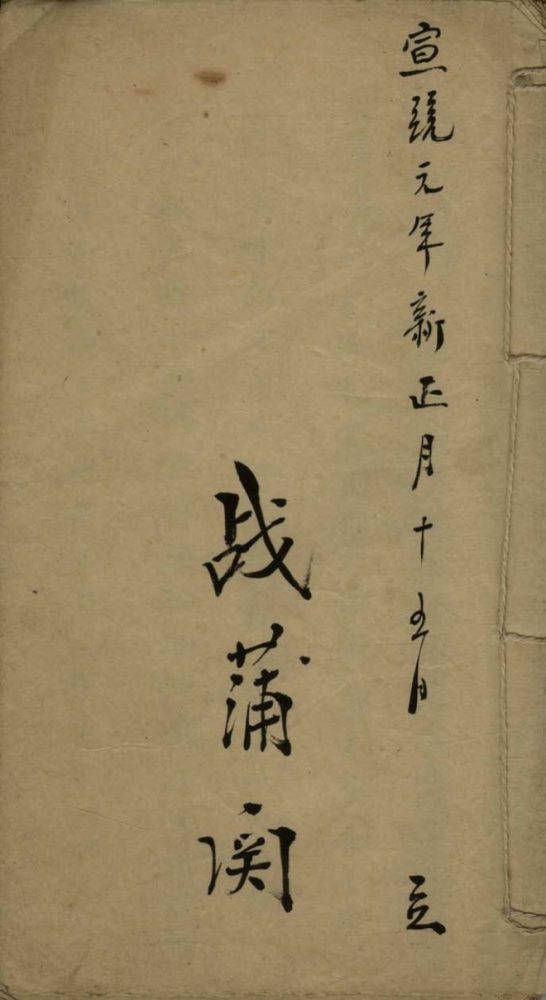 宣統元年新正月十五日立
战蒲関